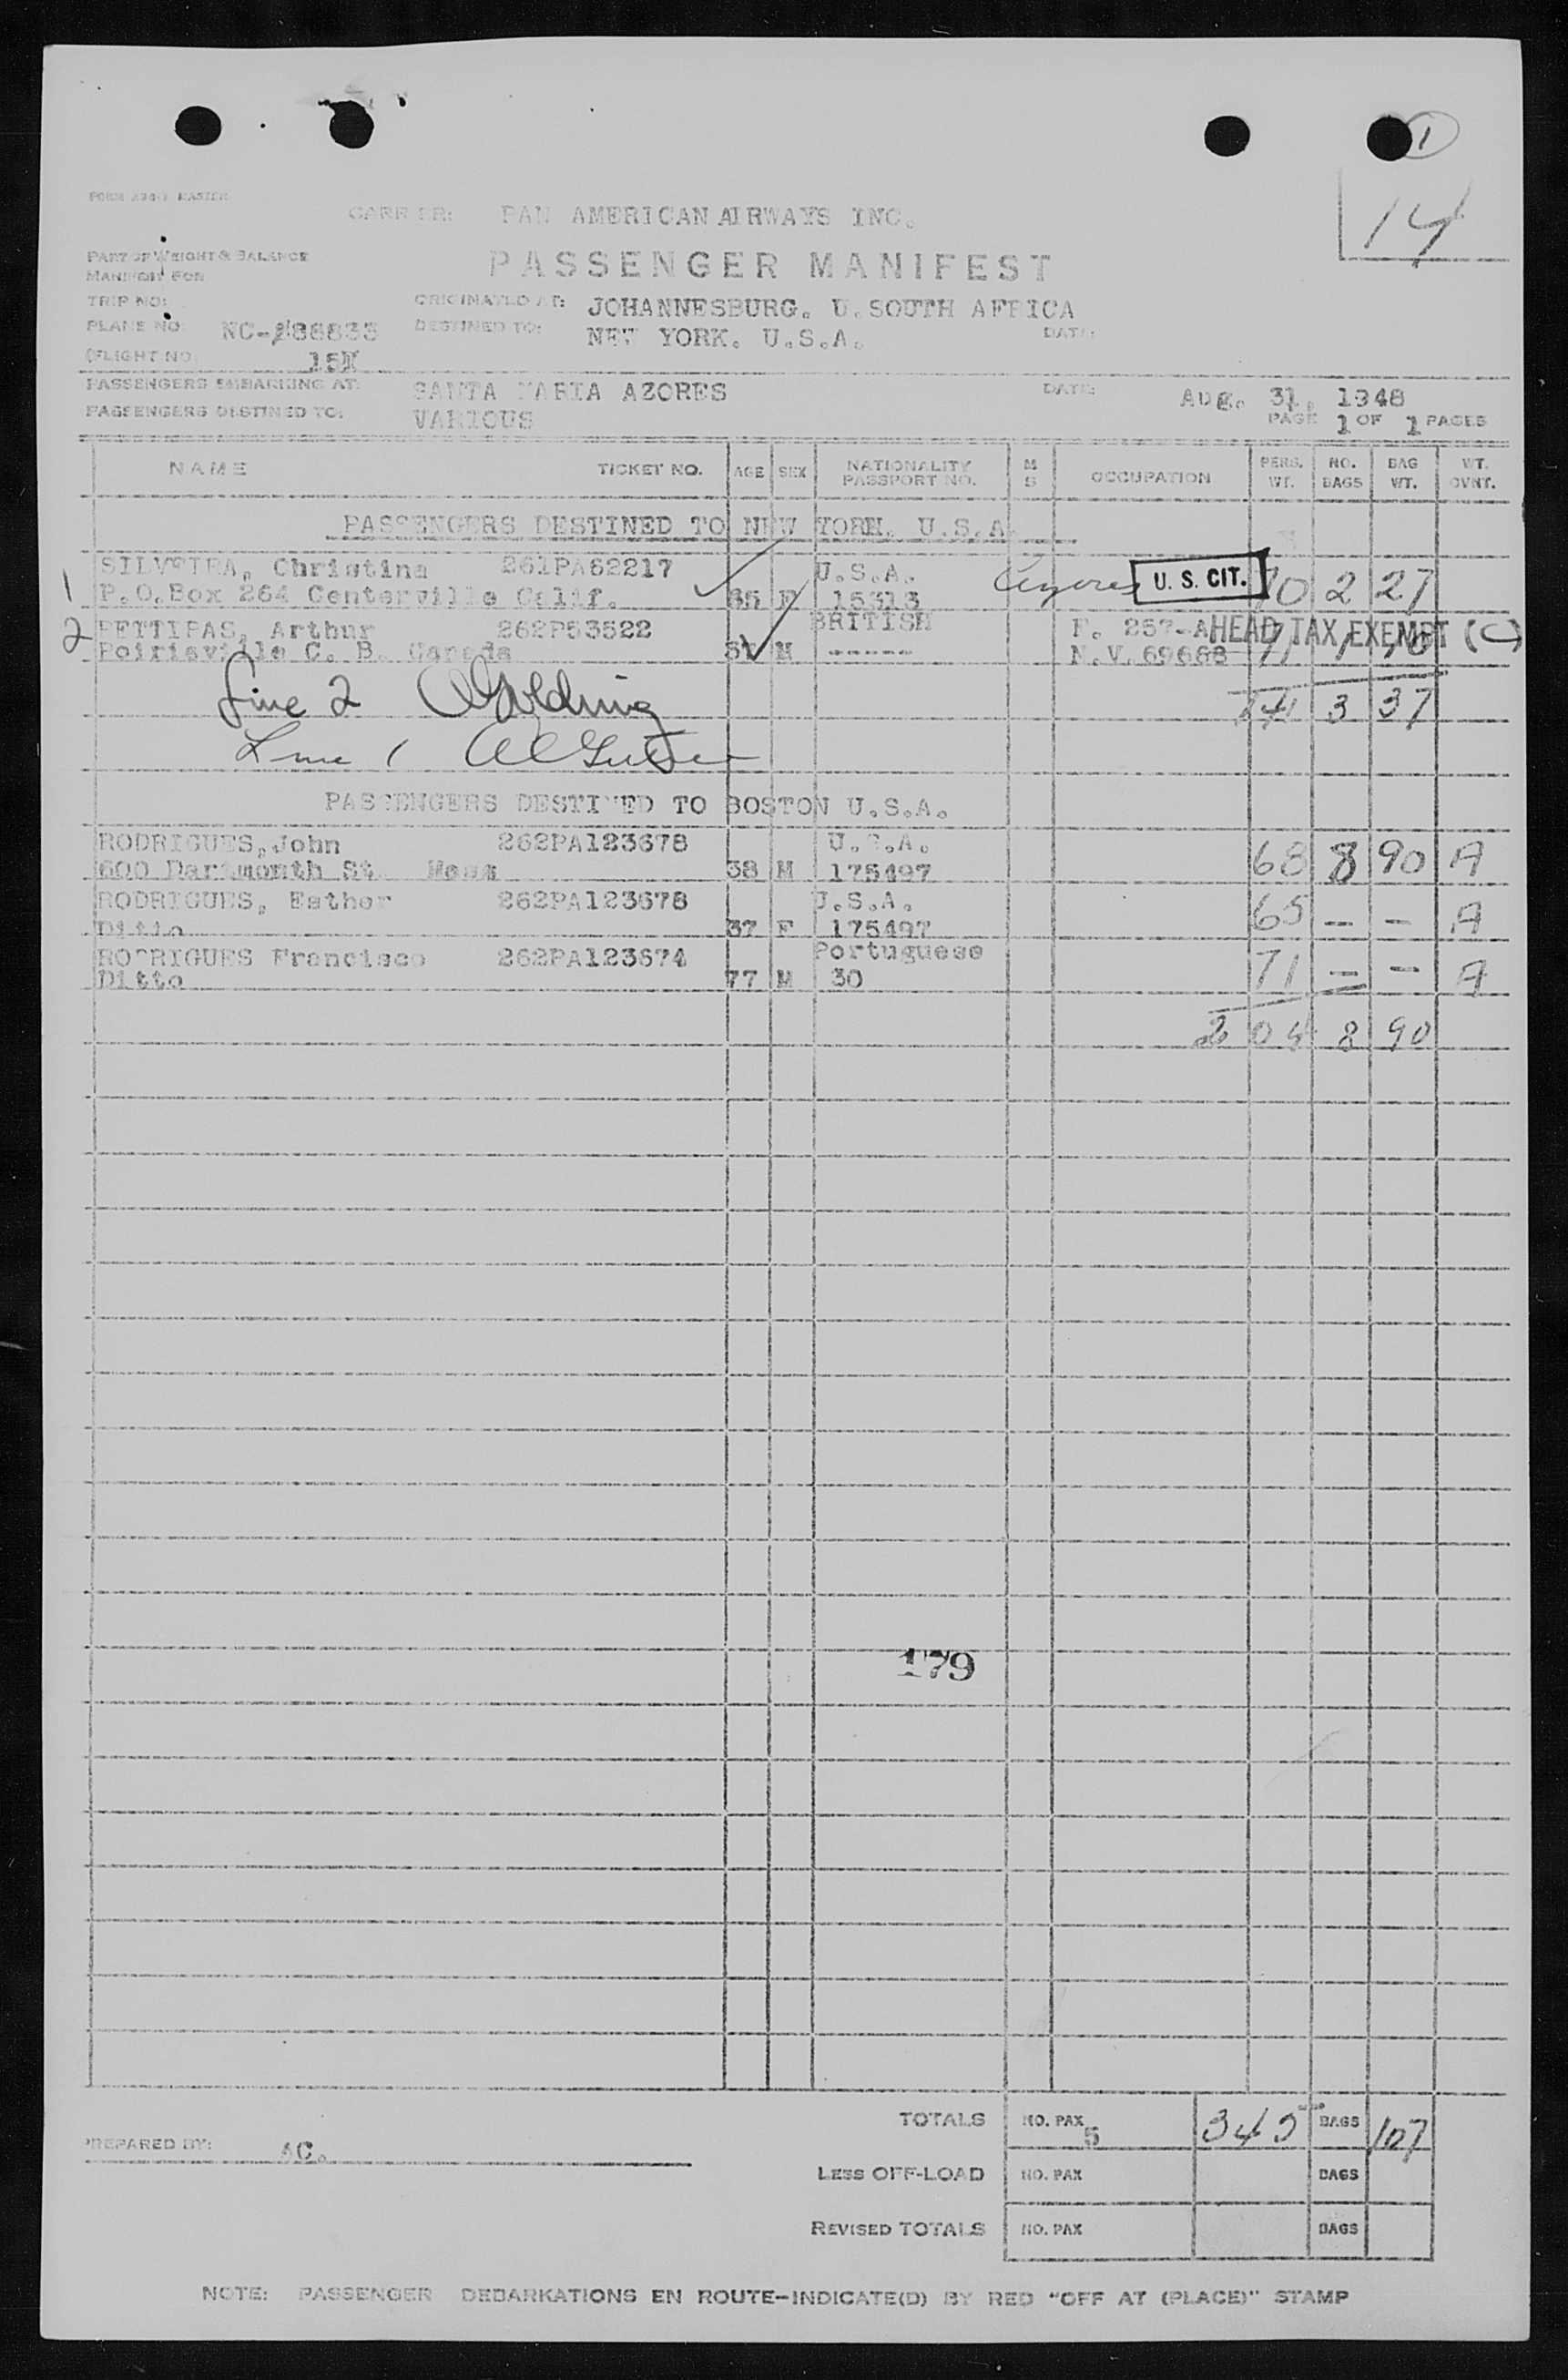 1
14
CARRIER: PAN AMERICAN AIRWAYS INC.
PART OF WEIGHT & BALANCE
MANIFEST FOR
PASSENGER MANIFEST
TRIP NO:
ORIGINATED AT: JOHANNESBURG. U. SOUTH AFRICA
PLANE NO: NC-88833
DESTINED TO: NEW YORK. U.S.A. DATE:
(FLIGHT NO.
PASSENGERS EMBARKING AT: SANTA MARIA AZORES DATE: Aug. 31, 1948
PASSENGERS DESTINED TO: VARIOUS PAGE 1 OF 1 PAGES
NAME TICKET NO. AGE SEX NATIONALITY PASSPORT NO. M S OCCUPATION PERS. WT. NO. BAGS BAG WT. WT. OVNT.
PASSENGERS DESTINED TO NEW YORK. U.S.A
SILVEIRA, Christina 261PA62217 U.S.A. Azores U. S. CIT. 70 2 27
1 P.O.Box 264 Centerville Calif. F 15313
2 PETTIPAS, Arthur 262P53522 BRITISH F. 257-A HEAD TAX EXEMPT (C)
C. B. Canada M ----- N.V. 69668 71 1 10
Line 2 Golding 141 3 37
Line 1
PASSENGERS DESTINED TO BOSTON U.S.A.
RODRIGUES, John 262PA123678 U.S.A. 68 8 90 A
600 Dartmonth St. Mass 38 M 175497
RODRIGUES, Esther 262PA123678 U.S.A. 65 - - A
Ditto 37 F 175497
RODRIGUES Francisco 262PA123674 Portuguese 71 - - A
Ditto 77 M 30
204 8 90
179
TOTALS NO. PAX 5 345 BAGS 107
PREPARED BY: AC.
LESS OFF-LOAD NO. PAX BAGS
REVISED TOTALS NO. PAX BAGS
NOTE: PASSENGER DEBARKATIONS EN ROUTE-INDICATE(D) BY RED "OFF AT (PLACE)" STAMP